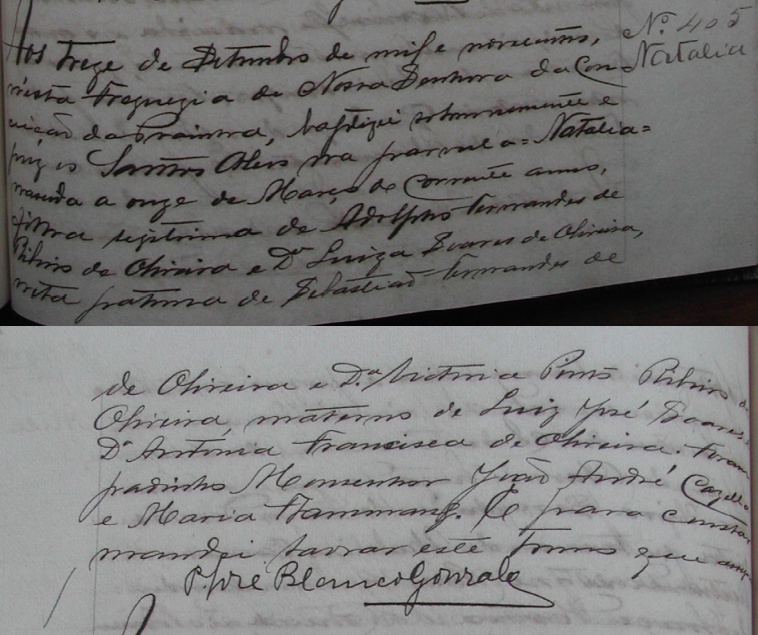 Nº 405
Natalia
Aos treze de Setembro de mil e novecentos,
n'esta Freguezia de Nossa Senhora da Con-
ceição da Prainha, baptizei solemnemente e
puz os Santos Oleos na parvula = Natalia =
nascida a onze de Março do corrente anno,
filha legitima de Adolpho Fernandes de
Ribeiro de Oliveira e Dª Luiza Soares de Oliveira,
neta paterna de Sebastião Fernandes de
de Oliveira e D.ª Victoria Pinto Ribeiro de
Oliveira, materna de Luiz José Soares
Dª Antonia Francisca de Oliveira. Foram
padrinhos Monsenhor João André
e Maria E para constar
mandei lavrar este termo que
P. José Blanco Gonzalez